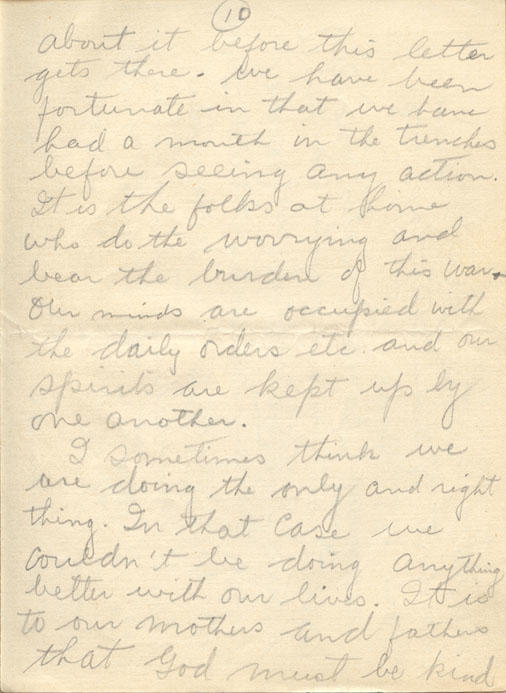 10
about it before this letter
gets there. We have been
fortunate in that we have
had a month in the trenches
before seeing any action.
It is the folks at home
who do the worrying and
bear the burden of this war.
Our minds are occupied with
the daily orders etc. and our
spirits are kept up by
one another.
I sometimes think we
are doing the only and right
thing. In that case we
couldn't be doing anything
better with our lives. It is
to our mothers and fathers
that God must be kind